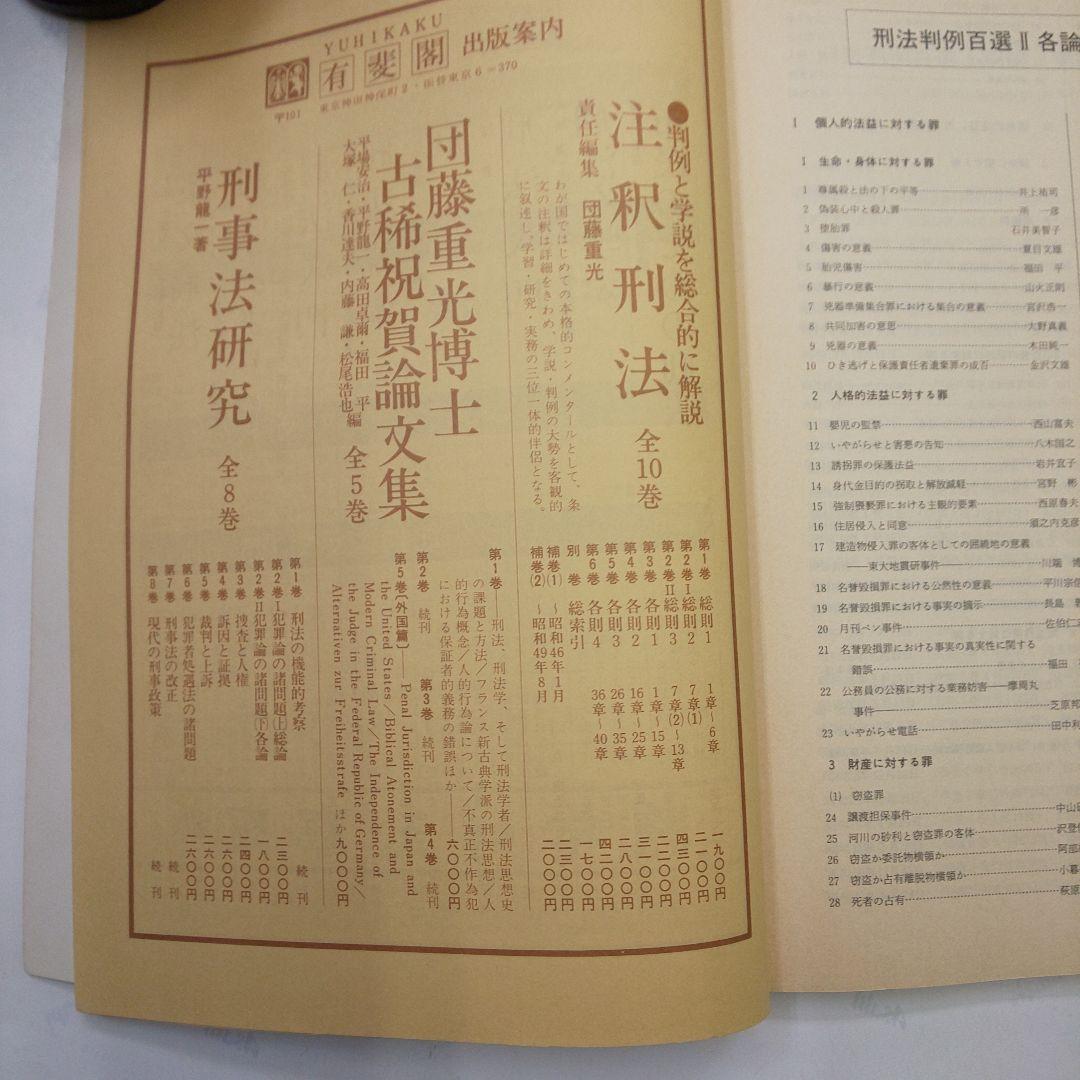 YUHIKAKU
有斐閣 出版案内
〒101 東京神田神保町2・振替東京6-370
●判例と学説を総合的に解説
注釈刑法 全10巻
責任編集 団藤重光
わが国ではじめての本格的コンメンタールとして、条
文の注釈は詳細をきわめ、学説・判例の大勢を客観的
に叙述し、学習・研究・実務の三位一体的伴侶となる。
第1巻 総則1 1章〜6章 一九〇〇円
第2巻Ⅰ 総則2 7章(1) 二一〇〇円
第2巻Ⅱ 総則3 7章(2)〜13章 四三〇〇円
第3巻 各則1 1章〜15章 二二〇〇円
第4巻 各則2 16章〜25章 三一〇〇円
第5巻 各則3 26章〜35章 二八〇〇円
第6巻 各則4 36章〜40章 四二〇〇円
別巻 総索引 一七〇〇円
補巻(1) 〜昭和46年1月 二三〇〇円
補巻(2) 〜昭和49年8月 二〇〇〇円
団藤重光博士
古稀祝賀論文集 全5巻
平場安治・平野龍一・高田卓爾・福田 平
大塚 仁・香川達夫・内藤 謙・松尾浩也編
第1巻——刑法、刑法学、そして刑法学者/刑法思想史
の課題と方法/フランス新古典学派の刑法思想/人
的行為概念/人的行為論について/不真正不作為犯
における保証者的義務の錯誤ほか——六〇〇〇円
第2巻 続刊 第3巻 続刊 第4巻 続刊
第5巻〔外国篇〕——Penal Jurisdiction in Japan and
the United States/Biblical Atonement and
Modern Criminal Law/The Independence of
the Judge in the Federal Republic of Germany/
Alternativen zur Freiheitsstrafe ほか九〇〇〇円
刑事法研究 全8巻
平野龍一著
第1巻 刑法の機能的考察 続刊
第2巻Ⅰ 犯罪論の諸問題(上)総論 二三〇〇円
第2巻Ⅱ 犯罪論の諸問題(下)各論 一八〇〇円
第3巻 捜査と人権 二四〇〇円
第4巻 訴因と証拠 二六〇〇円
第5巻 裁判と上訴 二六〇〇円
第6巻 犯罪者処遇法の諸問題 続刊
第7巻 刑事法の改正 続刊
第8巻 現代の刑事政策 二六〇〇円
刑法判例百選Ⅱ各論
Ⅰ 個人的法益に対する罪
1 生命・身体に対する罪
1 尊属殺と法の下の平等 井上祐司
2 偽装心中と殺人罪 所 一彦
3 堕胎罪 石井美智子
4 傷害の意義 夏目文雄
5 胎児傷害 福田 平
6 暴行の意義 山火正則
7 兇器準備集合罪における集合の意義 宮沢浩一
8 共同加害の意思 大野真義
9 兇器の意義 木田純一
10 ひき逃げと保護責任者遺棄罪の成否 金沢文雄
2 人格的法益に対する罪
11 嬰児の監禁 西山富夫
12 いやがらせと害悪の告知 八木国之
13 誘拐罪の保護法益 岩井宜子
14 身代金目的の拐取と解放減軽 宮野 彬
15 強制猥褻罪における主観的要素 西原春夫
16 住居侵入と同意 須之内克彦
17 建造物侵入罪の客体としての囲繞地の意義
——東大地震研事件 川端 博
18 名誉毀損罪における公然性の意義 平川宗信
19 名誉毀損罪における事実の摘示 長島
20 月刊ペン事件 佐伯仁
21 名誉毀損罪における事実の真実性に関する
錯誤 福田
22 公務員の公務に対する業務妨害——摩周丸
事件 芝原邦
23 いやがらせ電話 田中利
3 財産に対する罪
(1) 窃盗罪
24 譲渡担保事件 中山
25 河川の砂利と窃盗罪の客体 沢登
26 窃盗か委託物横領か 阿部
27 窃盗か占有離脱物横領か 小暮
28 死者の占有 萩原